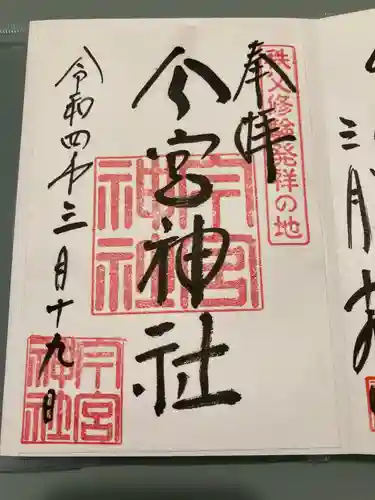 奉拝
秩父修験発祥の地
今宮神社
今宮神社
令和四年三月十九日
今宮神社
三月